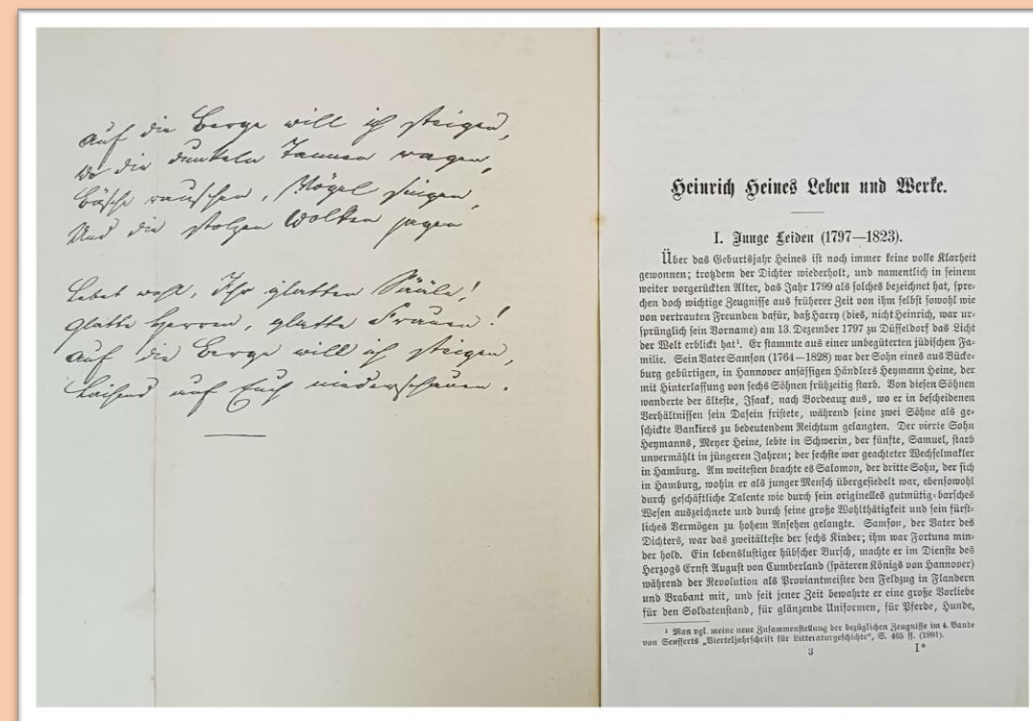 Auf die Berge will ich steigen,
Wo die dunkeln Tannen ragen,
Bäche rauschen, Vögel singen,
Und die stolzen Wolken jagen
Lebet wohl, Ihr glatten Sääle!
Glatte Herren, glatte Frauen!
Auf die Berge will ich steigen,
Lachend auf Euch niederschauen.
Heinrich Heines Leben und Werke.
I. Junge Leiden (1797—1823).
Über das Geburtsjahr Heines ist noch immer keine volle Klarheit
gewonnen; trotzdem der Dichter wiederholt, und namentlich in seinem
weiter vorgerückten Alter, das Jahr 1799 als solches bezeichnet hat, spre-
chen doch wichtige Zeugnisse aus früherer Zeit von ihm selbst sowohl wie
von vertrauten Freunden dafür, daß Harry (dies, nicht Heinrich, war ur-
sprünglich sein Vorname) am 13. Dezember 1797 zu Düsseldorf das Licht
der Welt erblickt hat¹. Er stammte aus einer unbegüterten jüdischen Fa-
milie. Sein Vater Samson (1764—1828) war der Sohn eines aus Bücke-
burg gebürtigen, in Hannover ansässigen Händlers Heymann Heine, der
mit Hinterlassung von sechs Söhnen frühzeitig starb. Von diesen Söhnen
wanderte der älteste, Isaak, nach Bordeaux aus, wo er in bescheidenen
Verhältnissen sein Dasein fristete, während seine zwei Söhne als ge-
schickte Bankiers zu bedeutendem Reichtum gelangten. Der vierte Sohn
Heymanns, Meyer Heine, lebte in Schwerin, der fünfte, Samuel, starb
unvermählt in jüngeren Jahren; der sechste war geachteter Wechselmakler
in Hamburg. Am weitesten brachte es Salomon, der dritte Sohn, der sich
in Hamburg, wohin er als junger Mensch übergesiedelt war, ebensowohl
durch geschäftliche Talente wie durch sein originelles gutmütig-barsches
Wesen auszeichnete und durch seine große Wohlthätigkeit und sein fürst-
liches Vermögen zu hohem Ansehen gelangte. Samson, der Vater des
Dichters, war das zweitälteste der sechs Kinder; ihm war Fortuna min-
der hold. Ein lebenslustiger hübscher Bursch, machte er im Dienste des
Herzogs Ernst August von Cumberland (späteren Königs von Hannover)
während der Revolution als Proviantmeister den Feldzug in Flandern
und Brabant mit, und seit jener Zeit bewahrte er eine große Vorliebe
für den Soldatenstand, für glänzende Uniformen, für Pferde, Hunde,
¹ Man vgl. meine neue Zusammenstellung der bezüglichen Zeugnisse im 4. Bande
von Seufferts „Vierteljahrschrift für Litteraturgeschichte“, S. 465 ff. (1891).
3 I*